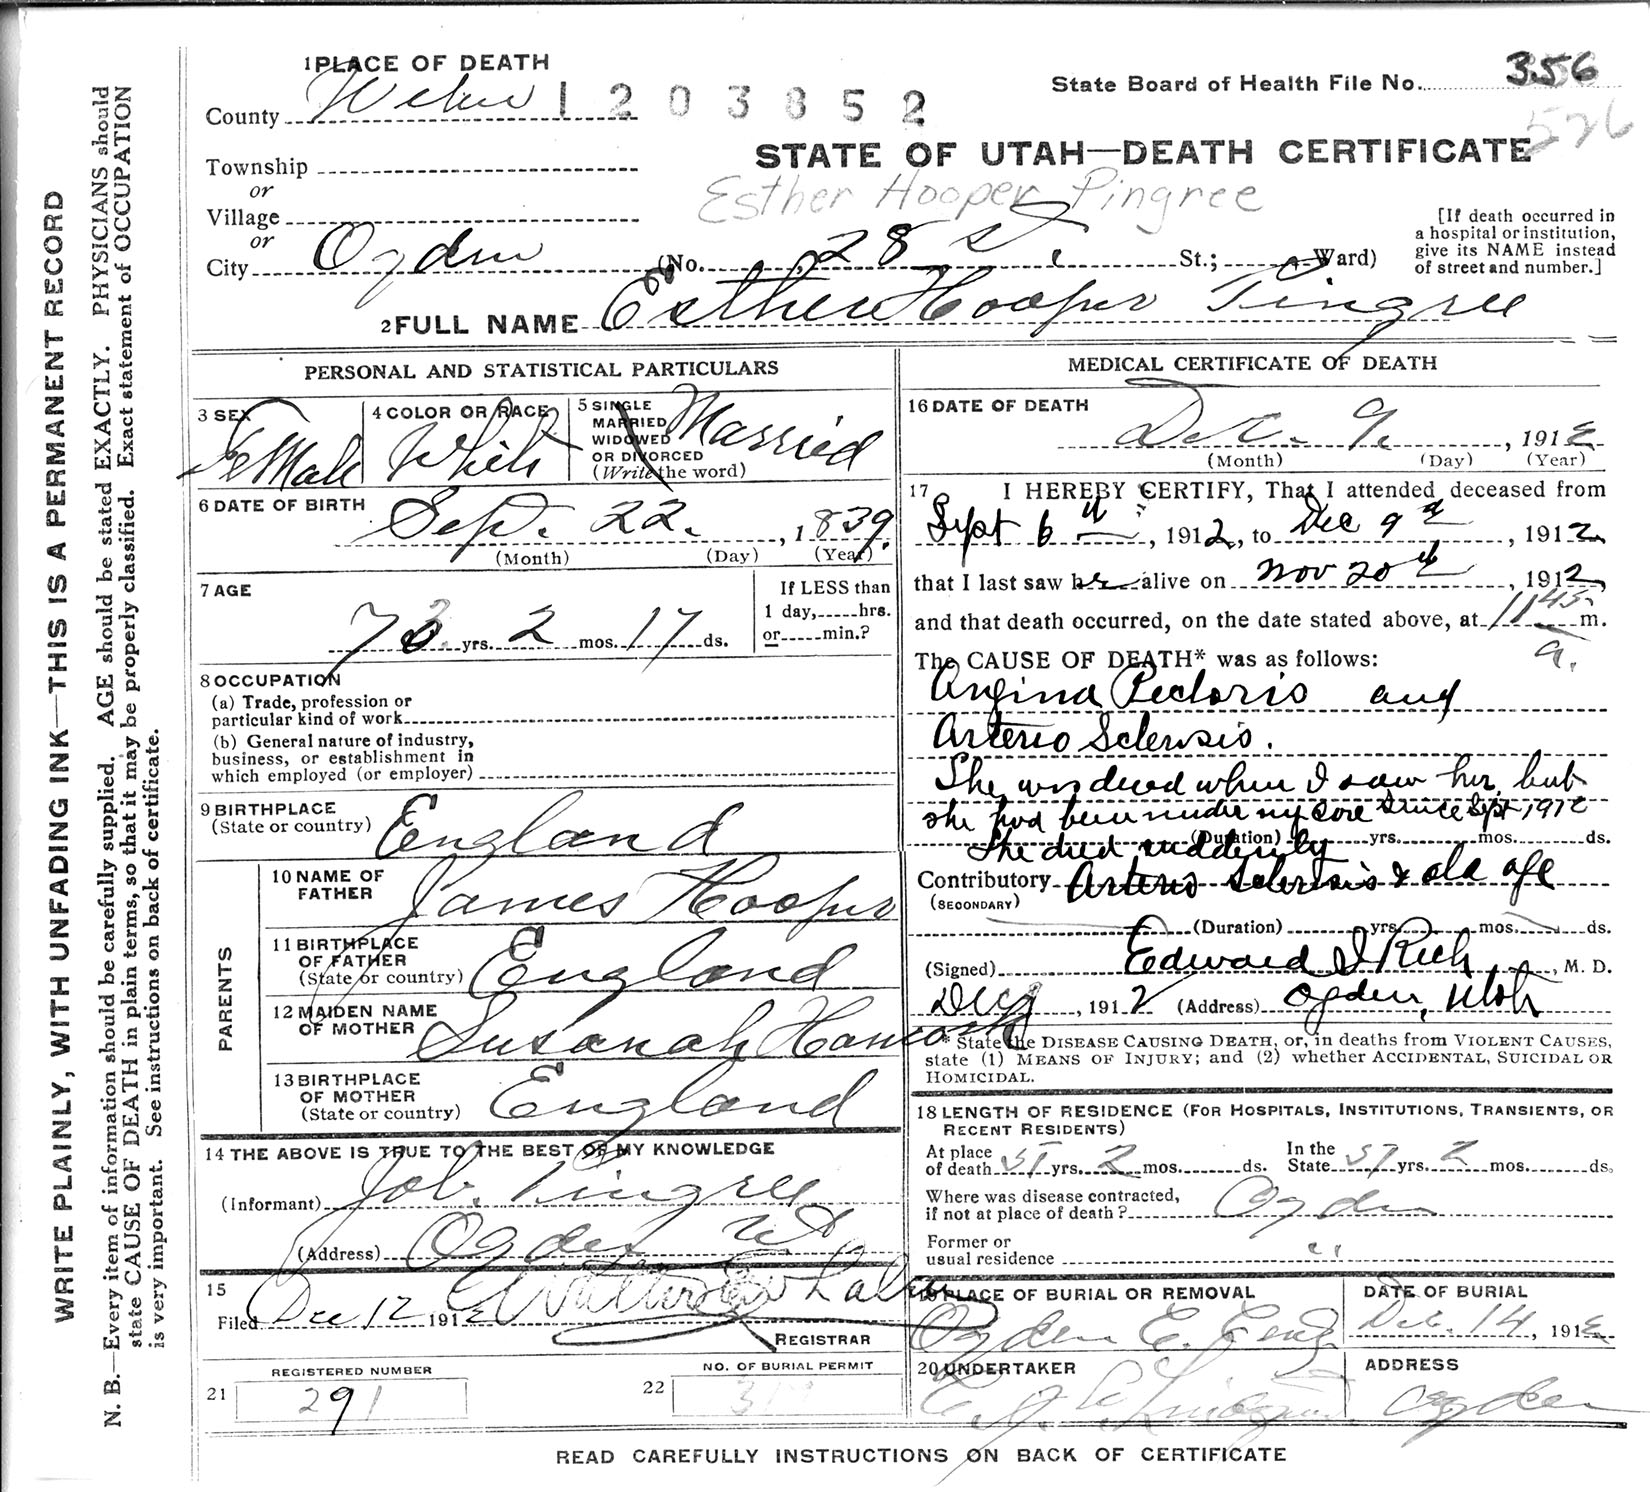 1 PLACE OF DEATH
State Board of Health File No. 356
526
County Weber 1 203852
STATE OF UTAH—DEATH CERTIFICATE
Township
or
Esther Hooper Pingree
Village
or
City Ogden (No. 28 St. St.; Ward)
[If death occurred in
a hospital or institution,
give its NAME instead
of street and number.]
2 FULL NAME Esther Hooper Pingree
PERSONAL AND STATISTICAL PARTICULARS
3 SEX Female
4 COLOR OR RACE White
5 SINGLE
MARRIED
WIDOWED
OR DIVORCED
(Write the word)
Married
6 DATE OF BIRTH
Sep. 22. , 1839.
(Month) (Day) (Year)
7 AGE
73 yrs. 2 mos. 17 ds.
If LESS than
1 day, hrs.
or min.?
8 OCCUPATION
(a) Trade, profession or
particular kind of work
(b) General nature of industry,
business, or establishment in
which employed (or employer)
9 BIRTHPLACE
(State or country) England
PARENTS
10 NAME OF
FATHER James Hooper
11 BIRTHPLACE
OF FATHER
(State or country) England
12 MAIDEN NAME
OF MOTHER Susanah Hancock
13 BIRTHPLACE
OF MOTHER
(State or country) England
14 THE ABOVE IS TRUE TO THE BEST OF MY KNOWLEDGE
(Informant) Job. Pingree
(Address) Ogden Ut
15
Filed Dec 12 1912
REGISTRAR
REGISTERED NUMBER
21 291
NO. OF BURIAL PERMIT
22
MEDICAL CERTIFICATE OF DEATH
16 DATE OF DEATH
Dec. 9. , 1912
(Month) (Day) (Year)
17 I HEREBY CERTIFY, That I attended deceased from
Sept 6th , 1912, to Dec 9th , 1912
that I last saw her alive on Nov 20th , 1912
and that death occurred, on the date stated above, at 11 45 m.
a.
The CAUSE OF DEATH* was as follows:
Angina Pectoris and
Arterio Sclerosis.
She was dead when I saw her, but
she had been under my care since Sept 1912
(Duration) yrs. mos. ds.
She died suddenly
Contributory Arterio Sclerosis & old age
(SECONDARY)
(Duration) yrs. mos. ds.
(Signed) Edward I Rich , M. D.
Dec 9 , 1912 (Address) Ogden, Utah
* State the DISEASE CAUSING DEATH, or, in deaths from VIOLENT CAUSES,
state (1) MEANS OF INJURY; and (2) whether ACCIDENTAL, SUICIDAL OR
HOMICIDAL.
18 LENGTH OF RESIDENCE (FOR HOSPITALS, INSTITUTIONS, TRANSIENTS, OR
RECENT RESIDENTS)
At place
of death 51 yrs. 2 mos. ds.
In the
State 57 yrs. 2 mos. ds.
Where was disease contracted,
if not at place of death? Ogden
Former or
usual residence "
19 PLACE OF BURIAL OR REMOVAL
Ogden
DATE OF BURIAL
Dec. 14 , 1912
20 UNDERTAKER
ADDRESS
Ogden
READ CAREFULLY INSTRUCTIONS ON BACK OF CERTIFICATE
WRITE PLAINLY, WITH UNFADING INK—THIS IS A PERMANENT RECORD
N. B.—Every item of information should be carefully supplied. AGE should be stated EXACTLY. PHYSICIANS should
state CAUSE OF DEATH in plain terms, so that it may be properly classified. Exact statement of OCCUPATION
is very important. See instructions on back of certificate.